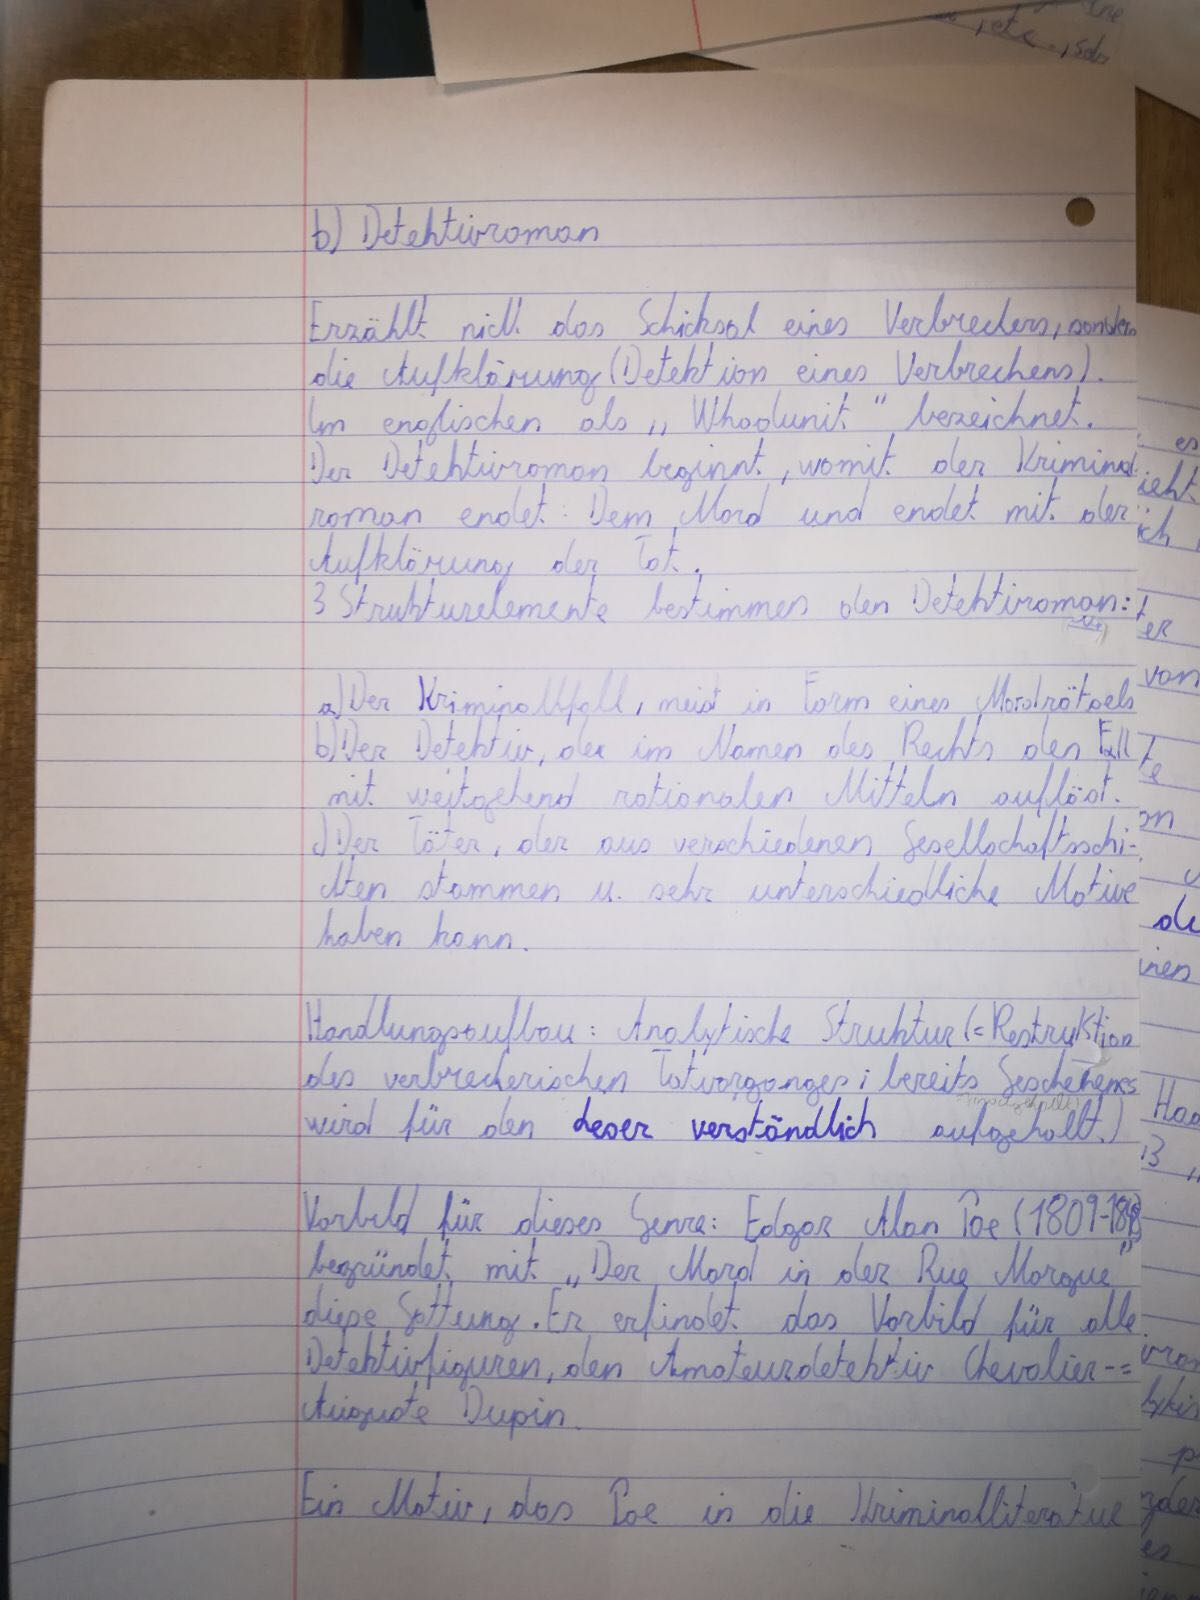 , etc., so
b) Detektivroman
Erzählt nicht das Schicksal eines Verbrechers, sondern
die Aufklärung (Detektion eines Verbrechens).
Im englischen als „Whodunit" bezeichnet.
Der Detektivroman beginnt, womit der Kriminal
roman endet: Dem Mord und endet mit der
Aufklärung der Tat.
3 Strukturelemente bestimmen den Detektivroman:
a) Der Kriminalfall, meist in Form eines Mordrätsels
b) Der Detektiv, der im Namen des Rechts den Fall
mit weitgehend rationalen Mitteln auflöst.
c) Der Täter, der aus verschiedenen Gesellschaftsschi-
chten stammen u. sehr unterschiedliche Motive
haben kann.
Handlungsaufbau: Analytische Struktur (= Restruktion
des verbrecherischen Tatvorganges; bereits Geschehenes
wird für den Leser verständlich aufgehollt.)
Vorbild für dieses Genre: Edgar Alan Poe (1809-
begründet mit „Der Mord in der Rue Morgue"
diese Gattung. Er erfindet das Vorbild für alle
Detektivfiguren, den Amateurdetektiv Chevalier-=
Auguste Dupin.
Ein Motiv, das Poe in die Kriminalliteratur